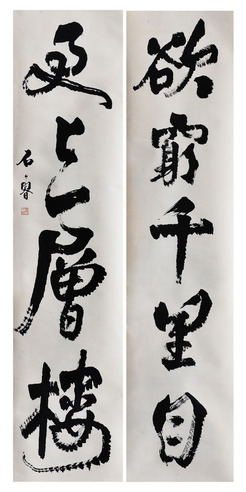 欲窮千里目
更上一層樓
石魯